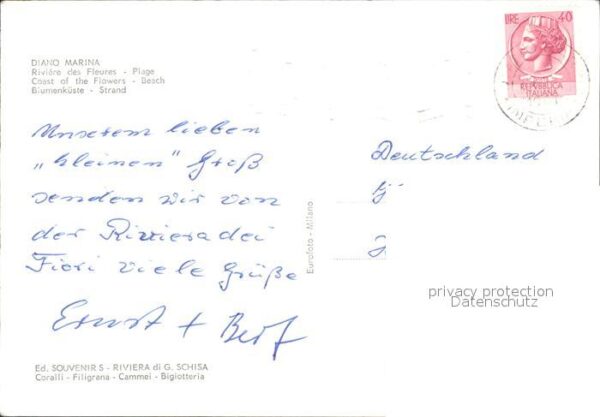 DIANO MARINA
Riviére des Fleures - Plage
Coast of the Flowers - Beach
Blumenküste - Strand
LIRE 40
REPVBBLICA
ITALIANA
Unserem lieben
„kleinen" Groß
senden wir von
der Riviera dei
Fiori viele Grüße
Ernst +
Deutschland
Eurofoto - Milano
privacy protection
Datenschutz
Ed. SOUVENIRS - RIVIERA di G. SCHISA
Coralli - Filigrana - Cammei - Bigiotteria